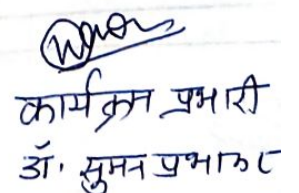 कार्यक्रम प्रभारी
डॉ. सुमन प्रभाकर